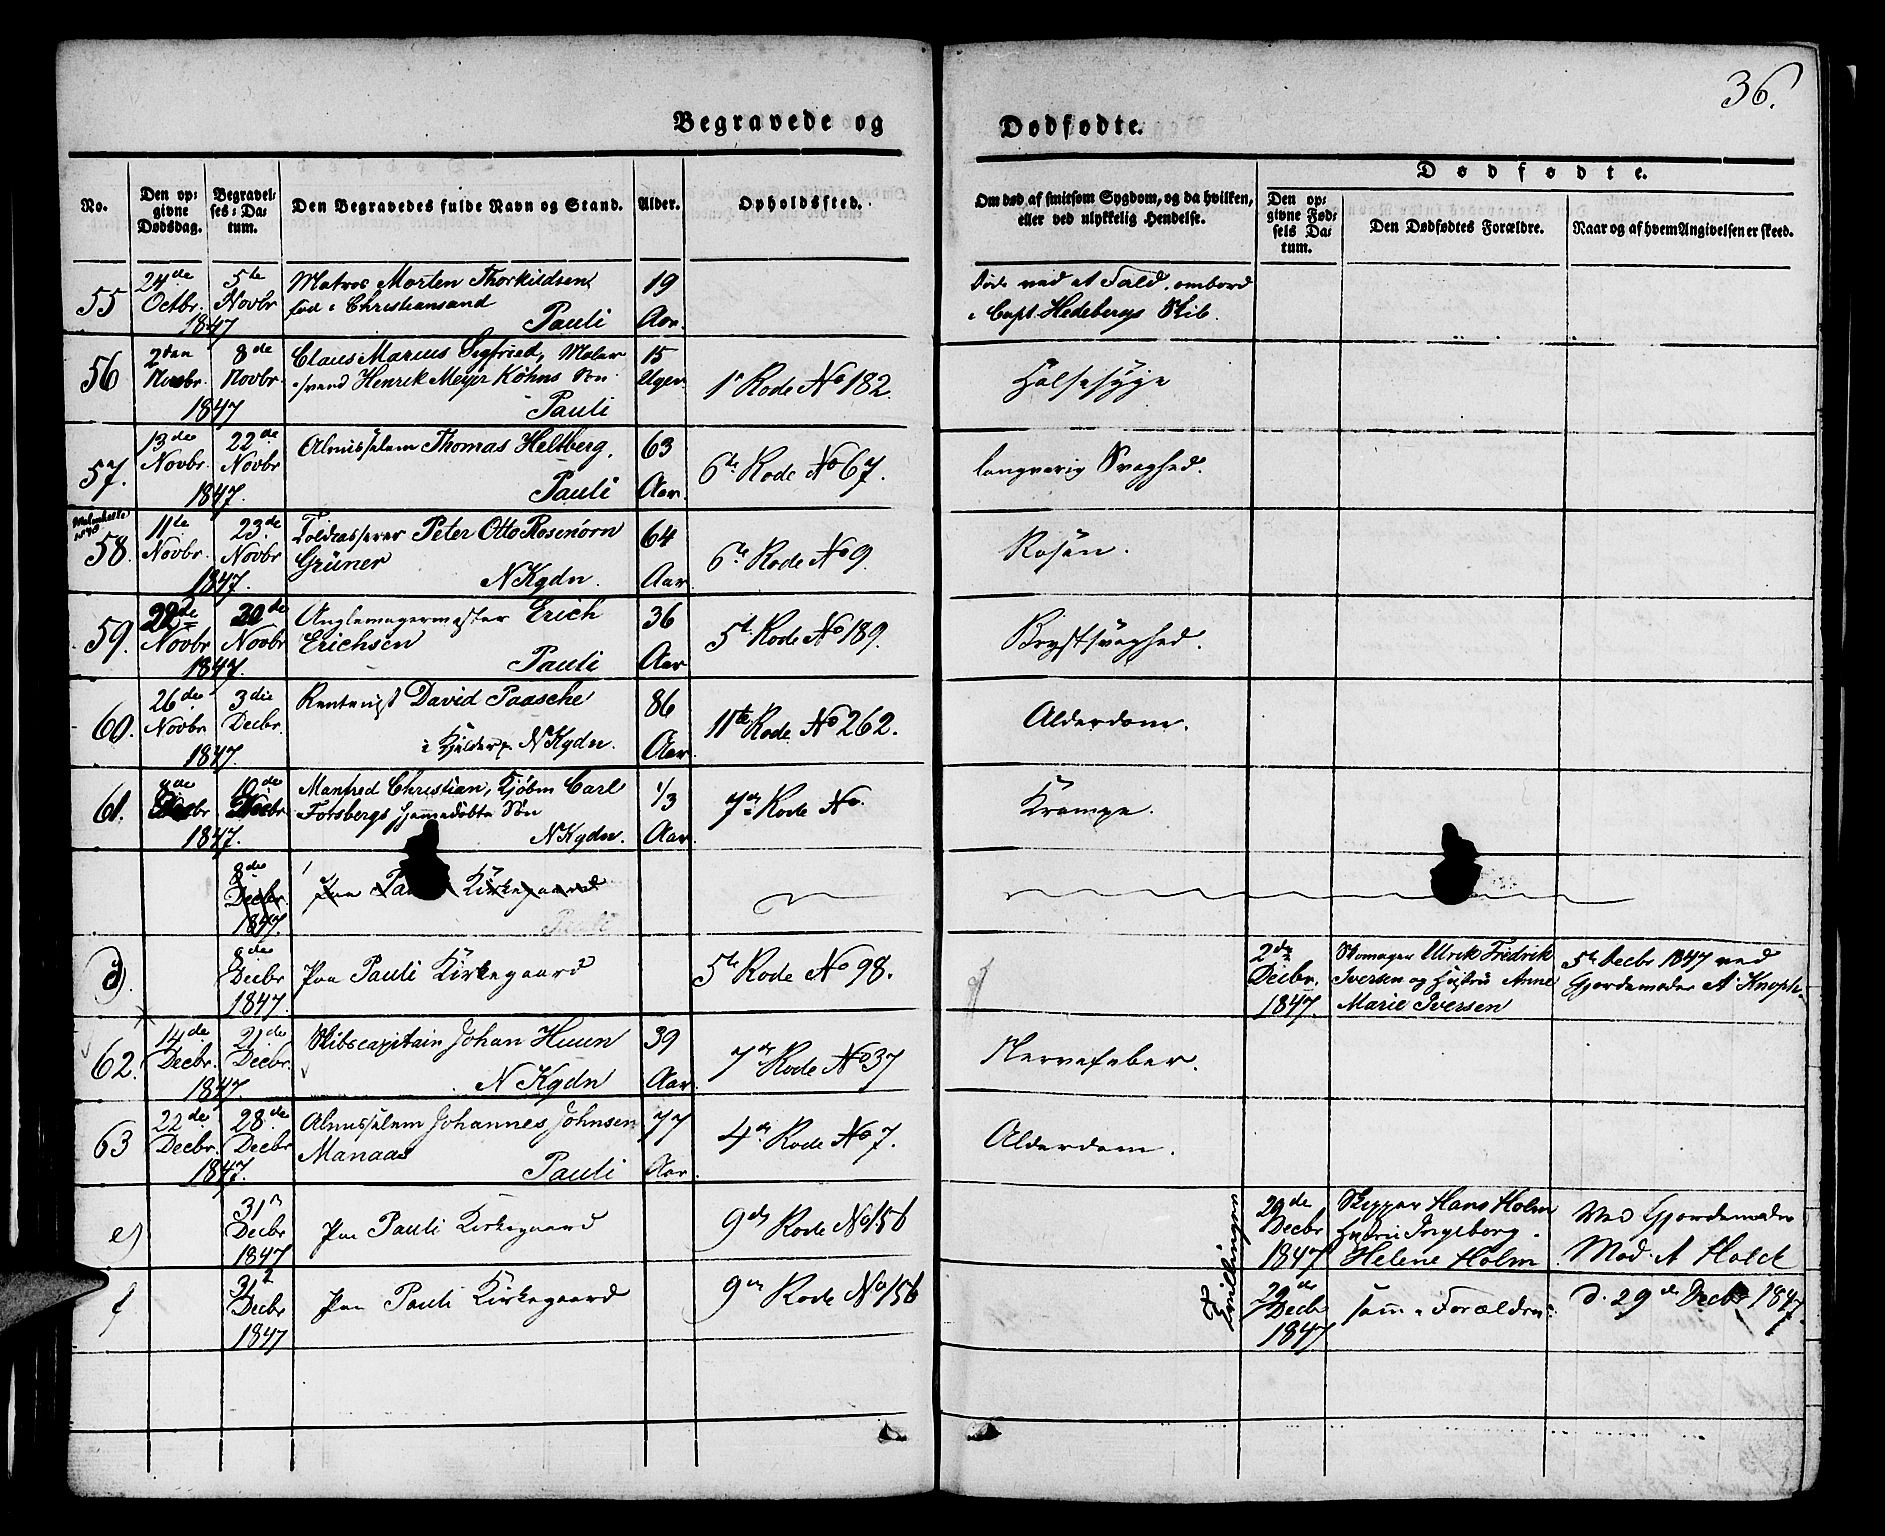 36.
Begravede og Dødfødte.
No.
Den opgivne Dødsdag.
Begravelses-Datum.
Den Begravedes fulde Navn og Stand.
Alder.
Opholdssted.
Om død af smitsom Sygdom, og da hvilken, eller ved ulykkelig Hendelse.
Dødfødte.
Den opgivne Fødsels Datum.
Den Dødfødtes Forældre.
Naar og af hvem Angivelsen er skeed.
55 24de Octbr. 5te Novbr 1847
Matros Morten Thorkildsen
fød i Christiansand
Pauli
19 Aar.
Døde ved et Fald ombord
i Capt. Hedebergs Skib.
56 2den Novbr 8de Novbr 1847
Claus Marius Sigfried, Maler
svend Henrik Meyer Köhns Søn
Pauli
15 Uger
1e Rode No 182.
Halsesyge
57. 13de Novbr. 22de Novbr 1847.
Almisselem Thomas Heltberg.
Pauli
63 Aar.
6te Rode No 67.
langvarig Svaghed.
58. 11te Novbr. 23de Novbr 1847.
Toldcasserer Peter Otto Rosenörn
Grüner
N Kgdn.
64 Aar
6te Rode No 9.
Rosen.
59. 22de Novbr 30de Novbr 1847.
Anglemagermester Erich
Erichsen
Pauli
36 Aar
5te Rode No 189.
Brystsvaghed.
60. 26de Novbr 3die Decbr. 1847.
Rentenist David Paasche
i Kjelder p. N Kgdn.
86 Aar.
11te Rode No 262.
Alderdom.
61. 8de Decbr 10de Decbr 1847.
Manfred Christian, Kjøbm Carl
Forsbergs hjemmedøbte Søn
N Kgdn.
1/3 Aar.
7de Rode No.
Krampe.
8de Decbr 1847.
Paa Pauli Kirkegaard
Pauli
d). 8de Decbr 1847.
Paa Pauli Kirkegaard
5te Rode No 98.
2den Decbr. 1847.
Skomager Ulrik Fredrik
Iversen og Hustru Anne
Marie Iversen
5te Decbr 1847 ved
Gjordemoder A. Knoph.
62. 14de Decbr. 21de Decbr. 1847.
Skibscapitain Johan Huun
N Kgdn
39 Aar.
7de Rode No 37
Nervefeber.
63 22de Decbr. 28de Decbr 1847.
Almisselem Johannes Johnsen
Manaas
Pauli
77 Aar.
4de Rode No 7.
Alderdom.
e) 31 Decbr 1847
Paa Pauli Kirkegaard
9de Rode No 156
Tvillinger
29de Decbr 1847
Skipper Hans Holm
Hustru Ingeborg
Helene Holm
Ved Gjordemoder
Mad. A Holck
f 31 Decbr 1847
Paa Pauli Kirkegaard
9de Rode No 156
29de Decbr 1847.
samme Forældre
d. 29de Decbr 1847.